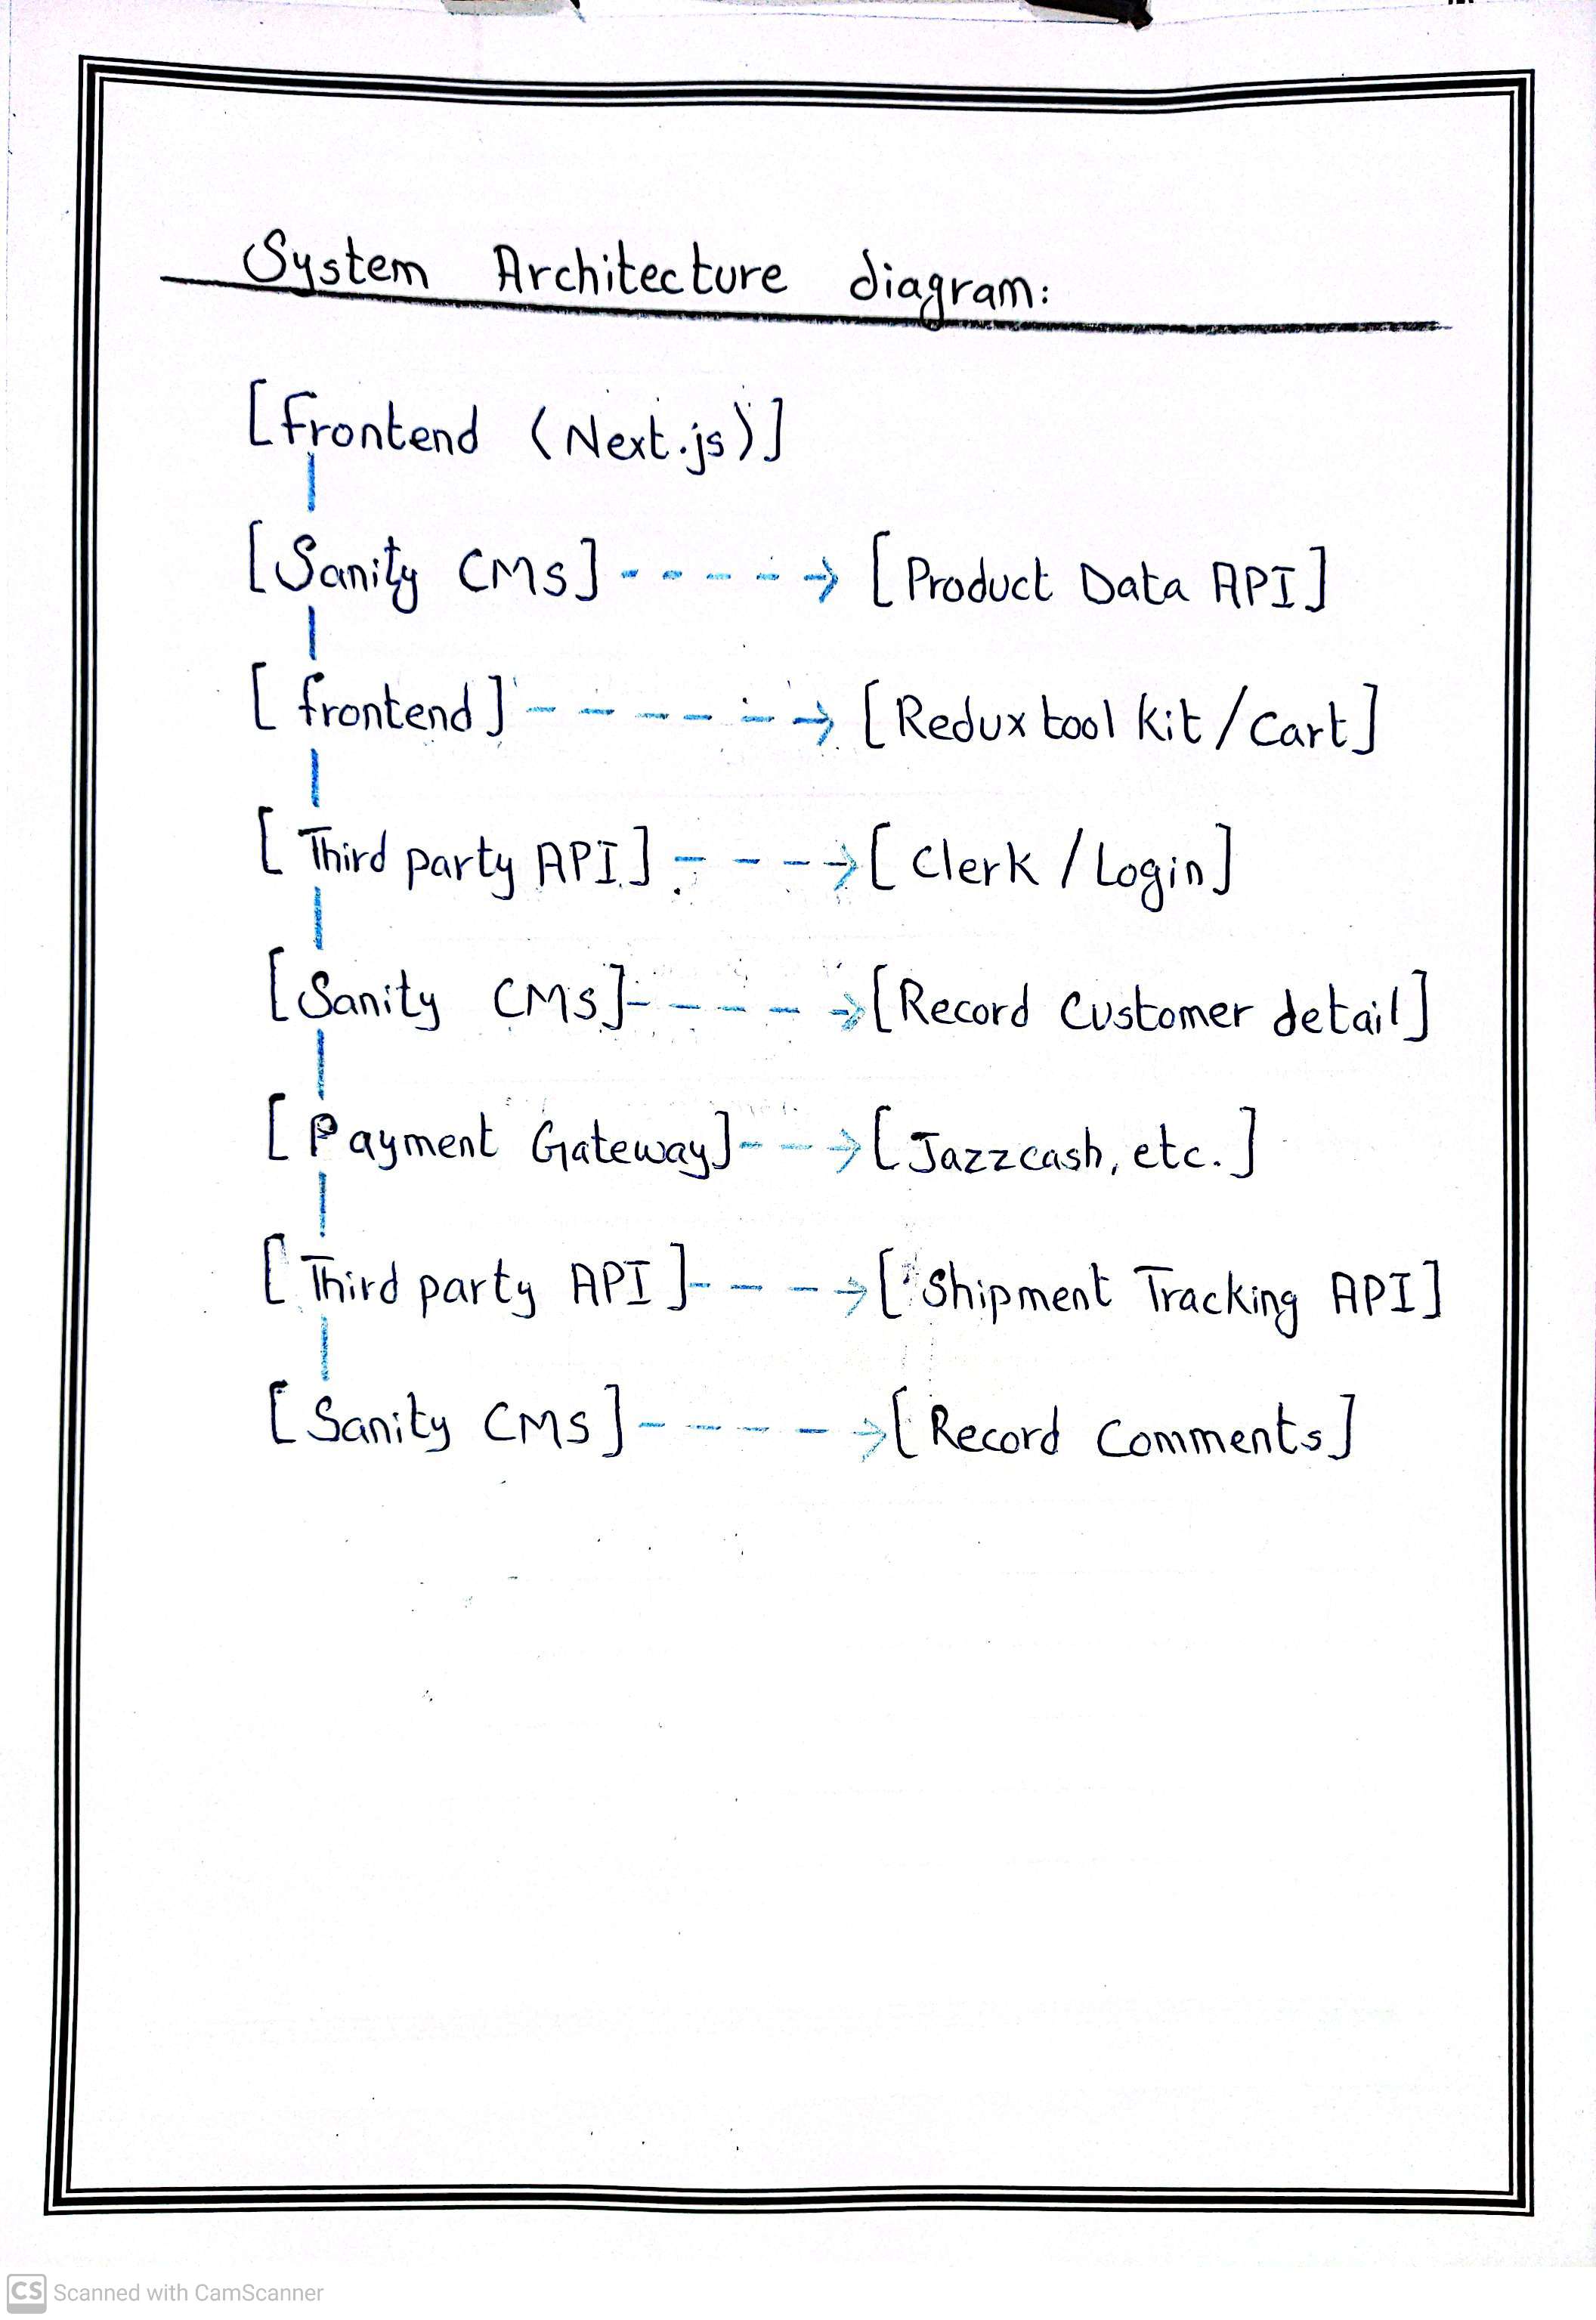 System Architecture diagram:
[frontend (Next.js)]
[Sanity CMS] -----> [Product Data API]
[frontend] ------> [Redux tool kit/Cart]
[Third party API] ----> [Clerk / Login]
[Sanity CMS] -----> [Record Customer detail]
[Payment Gateway] ---> [Jazzcash, etc.]
[Third party API] ----> [Shipment Tracking API]
[Sanity CMS] -----> [Record Comments]
CS Scanned with CamScanner